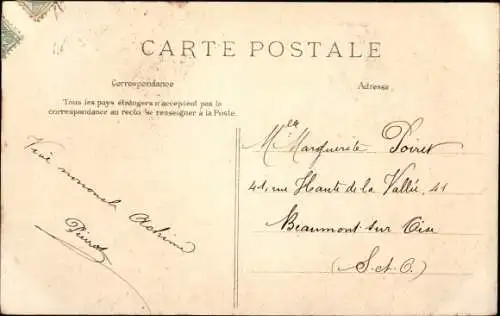 CARTE POSTALE
Correspondance
Adresse
Tous les pays étrangers n'acceptent pas la
correspondance au recto (Se renseigner à la Poste.
Mlle Marguerite Poiret
41, rue Haute de la Vallée, 41
Beaumont sur Oise
(S.et.O.)
Pierrot